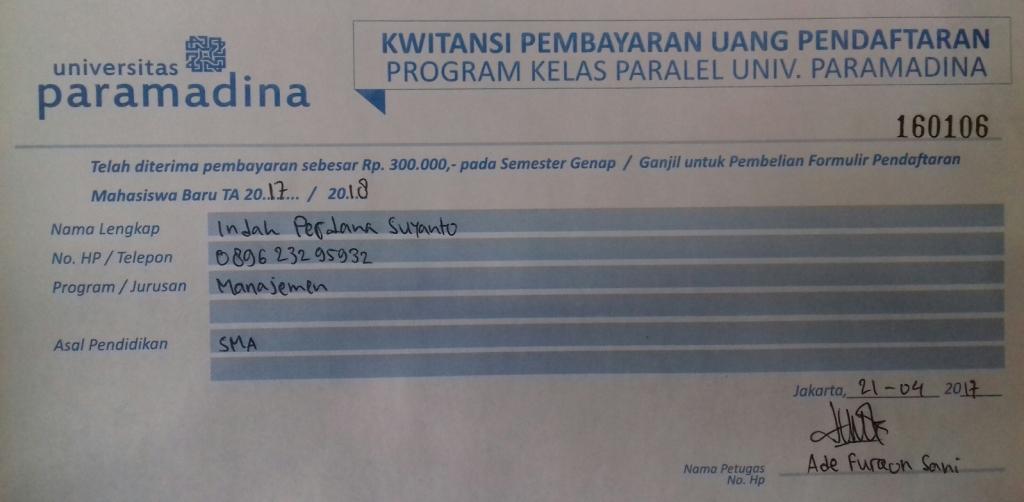 universitas
paramadina
KWITANSI PEMBAYARAN UANG PENDAFTARAN
PROGRAM KELAS PARALEL UNIV. PARAMADINA
160106
Telah diterima pembayaran sebesar Rp. 300.000,- pada Semester Genap / Ganjil untuk Pembelian Formulir Pendaftaran
Mahasiswa Baru TA 20.17... / 20.18
Nama Lengkap Indah Perdana Suyanto
No. HP / Telepon 089623295932
Program / Jurusan Manajemen
Asal Pendidikan SMA
Jakarta, 21-04 2017
Nama Petugas Ade Furqon Sani
No. Hp